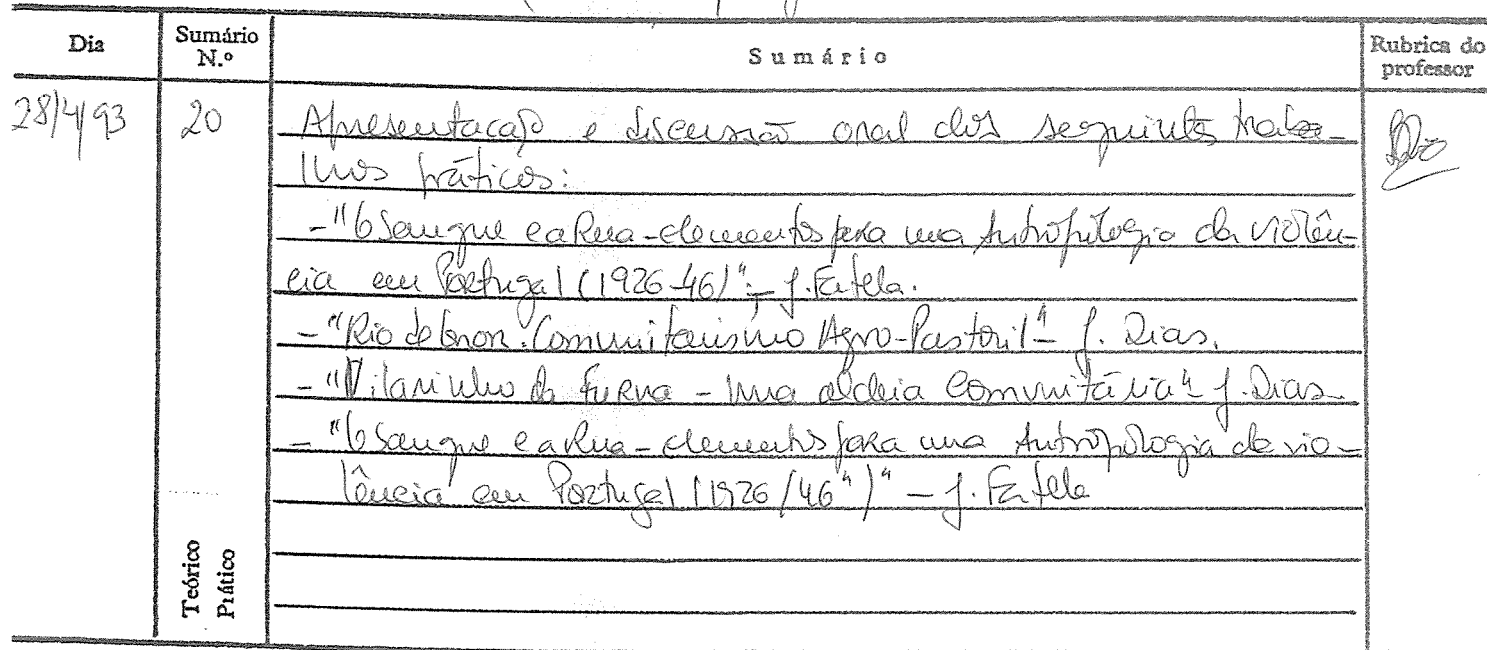 Dia
Sumário N.º
Sumário
Rubrica do professor
28/4/93
20
Apresentação e discussão oral dos seguintes traba-
lhos práticos:
- "O Sangue e a Rua - elementos para uma Antropologia da violên-
cia em Portugal (1926-46)" - J. Fatela.
- "Rio de Onor. Comunitarismo Agro-Pastoril" - J. Dias.
- "Vilarinho da Furna - uma aldeia Comunitária" J. Dias
- "O Sangue e a Rua - elementos para uma Antropologia da vio-
lência em Portugal (1926/46")" - J. Fatela
Teórico
Prático